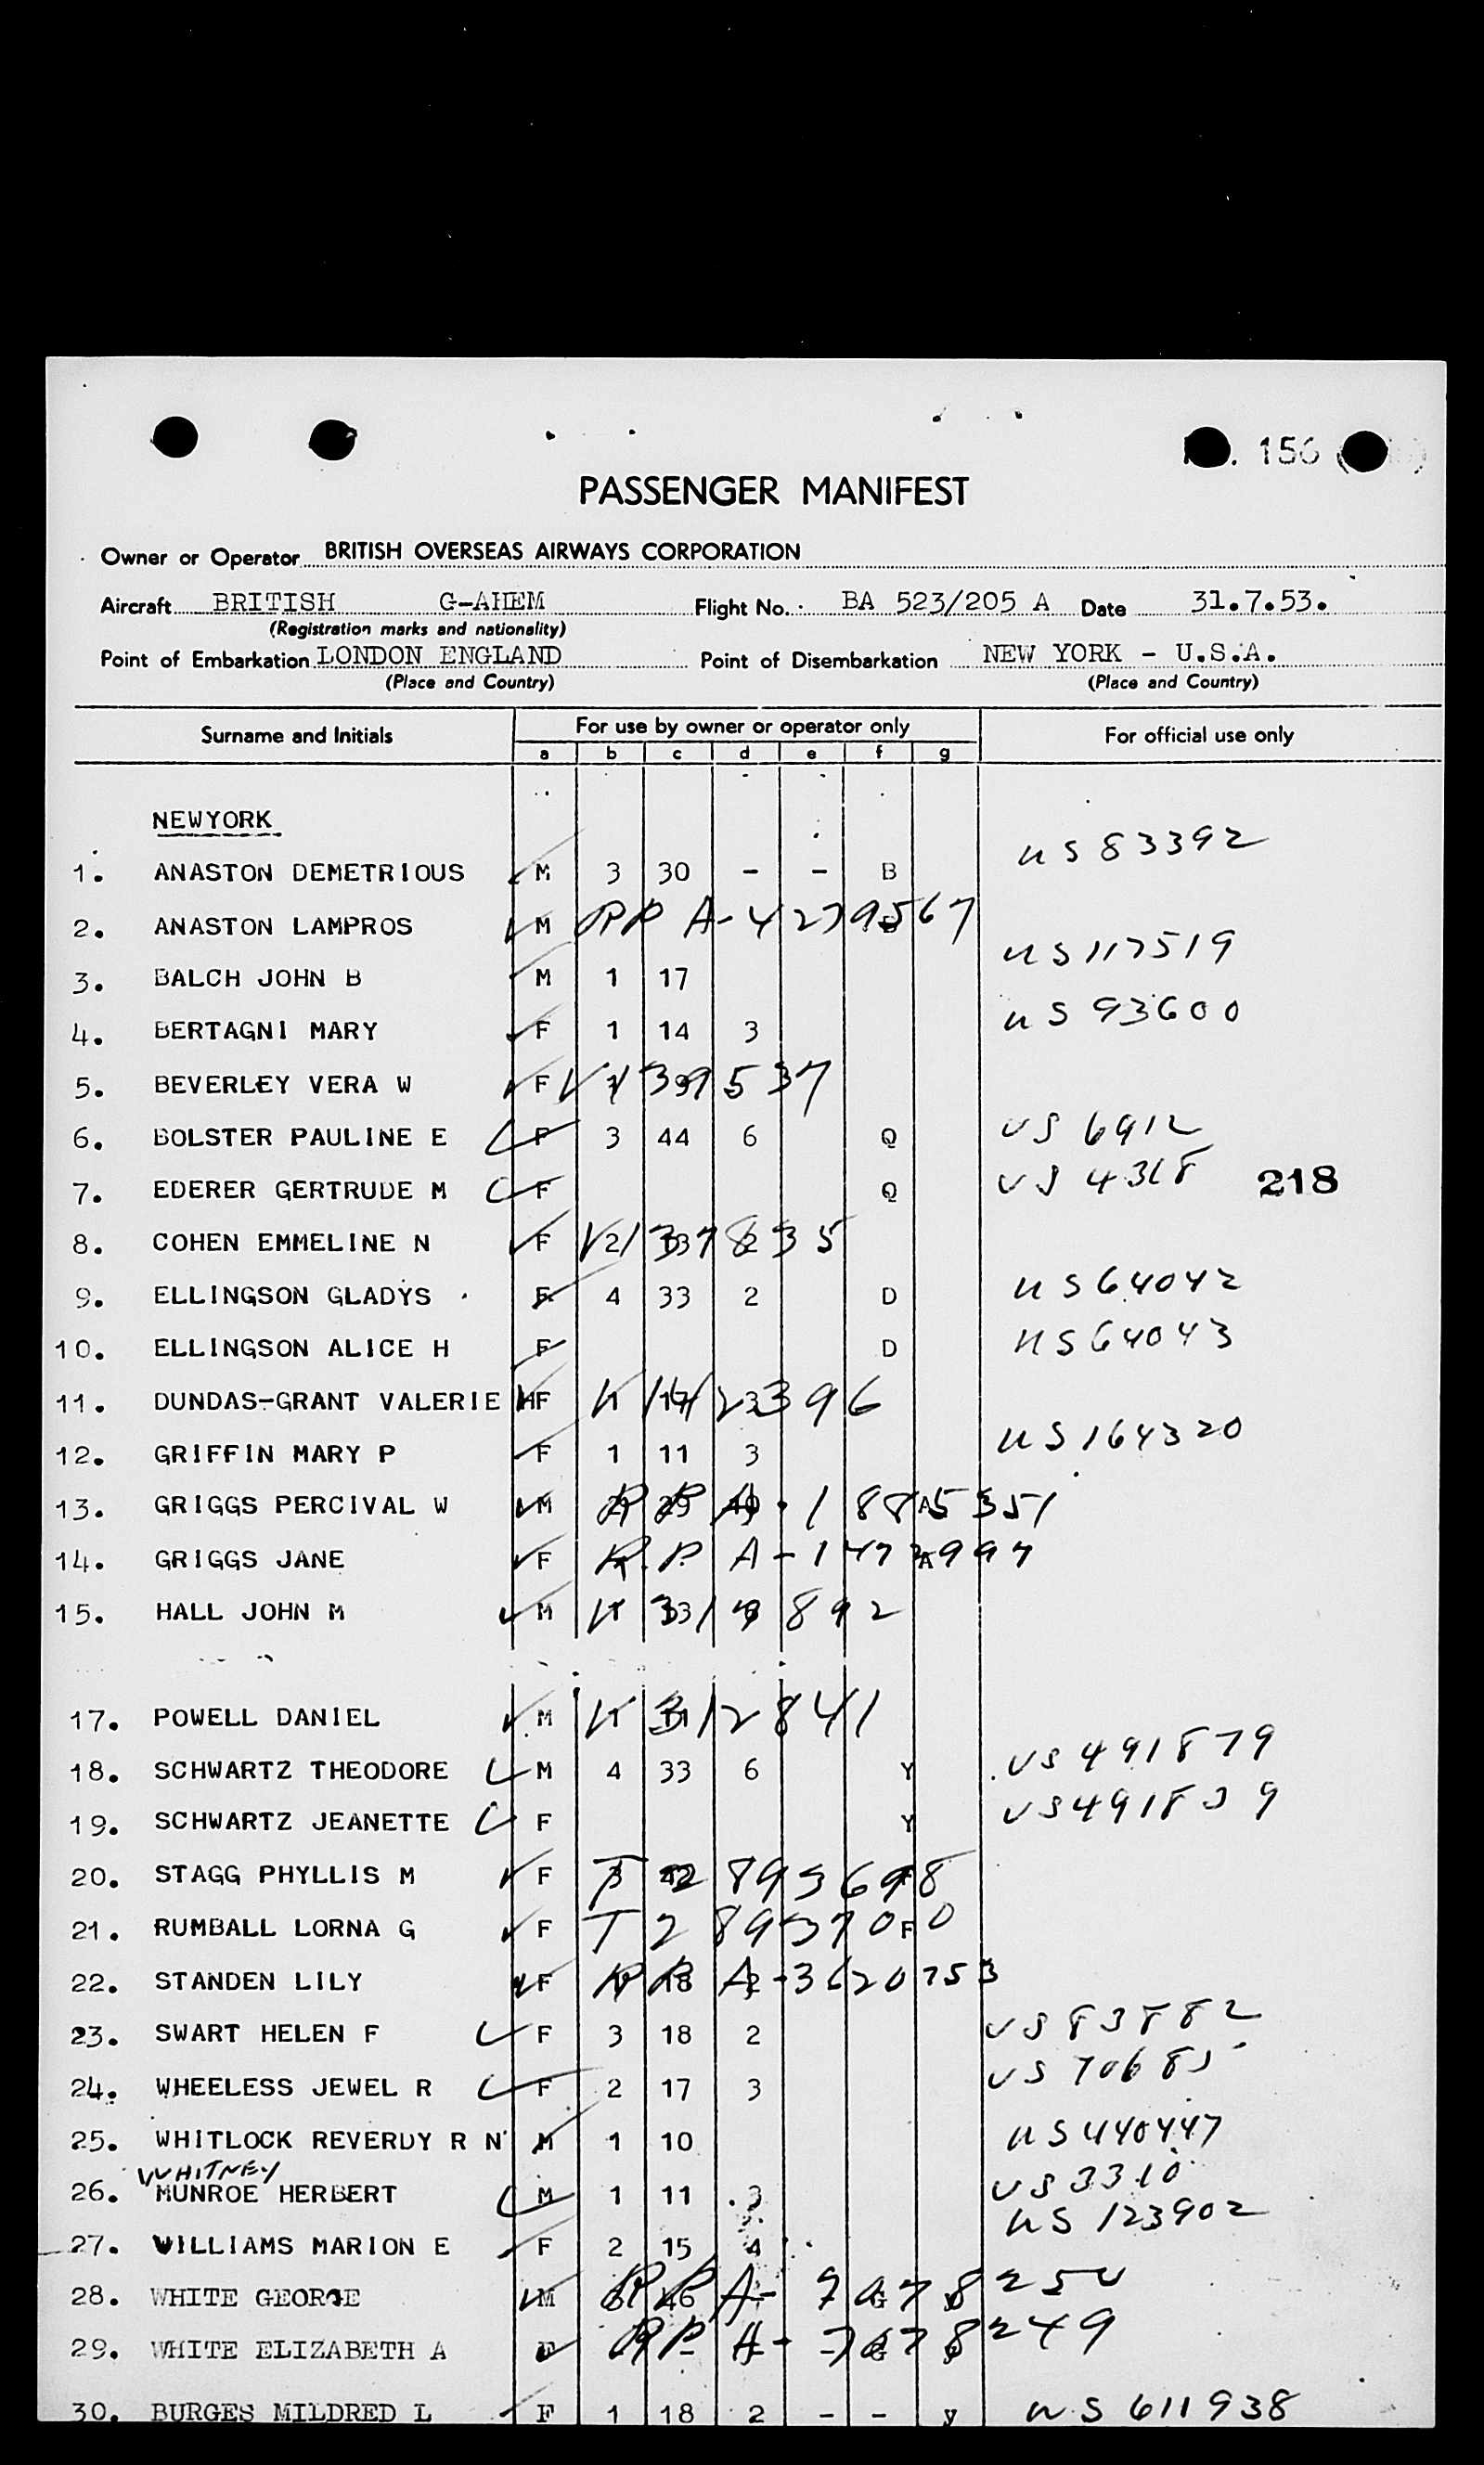 . 156 (
PASSENGER MANIFEST
Owner or Operator BRITISH OVERSEAS AIRWAYS CORPORATION
Aircraft BRITISH G-AHEM Flight No. BA 523/205 A Date 31.7.53.
(Registration marks and nationality)
Point of Embarkation LONDON ENGLAND Point of Disembarkation NEW YORK - U.S.A.
(Place and Country) (Place and Country)
Surname and Initials For use by owner or operator only For official use only
a b c d e f g
NEWYORK
1. ANASTON DEMETRIOUS M 3 30 - - B US 83392
2. ANASTON LAMPROS M RP A-4279567
3. BALCH JOHN B M 1 17 US 117519
4. BERTAGNI MARY F 1 14 3 US 93600
5. BEVERLEY VERA W F V 1399537
6. BOLSTER PAULINE E F 3 44 6 Q US 6912
7. EDERER GERTRUDE M F Q US 4318
218
8. COHEN EMMELINE N F
9. ELLINGSON GLADYS F 4 33 2 D US 64042
10. ELLINGSON ALICE H F D US 64043
11. DUNDAS-GRANT VALERIE HF
12. GRIFFIN MARY P F 1 11 3 US 164320
13. GRIGGS PERCIVAL W M RP A-1885351
14. GRIGGS JANE F R.P. A-1473997
15. HALL JOHN M M
17. POWELL DANIEL M
18. SCHWARTZ THEODORE M 4 33 6 Y US 491879
19. SCHWARTZ JEANETTE F Y US 491839
20. STAGG PHYLLIS M F T 2893698
21. RUMBALL LORNA G F T 2893700 F
22. STANDEN LILY F RP A-3620753
23. SWART HELEN F F 3 18 2 US 83882
24. WHEELESS JEWEL R F 2 17 3 US 70685
25. WHITLOCK REVERDY R N M 1 10 US 440447
WHITNEY
26. MUNROE HERBERT M 1 11 3 US 3310
27. WILLIAMS MARION E F 2 15 4 US 123902
28. WHITE GEORGE M RP A-7078250
29. WHITE ELIZABETH A F RP A-7078249
30. BURGES MILDRED L F 1 18 2 - - y US 611938